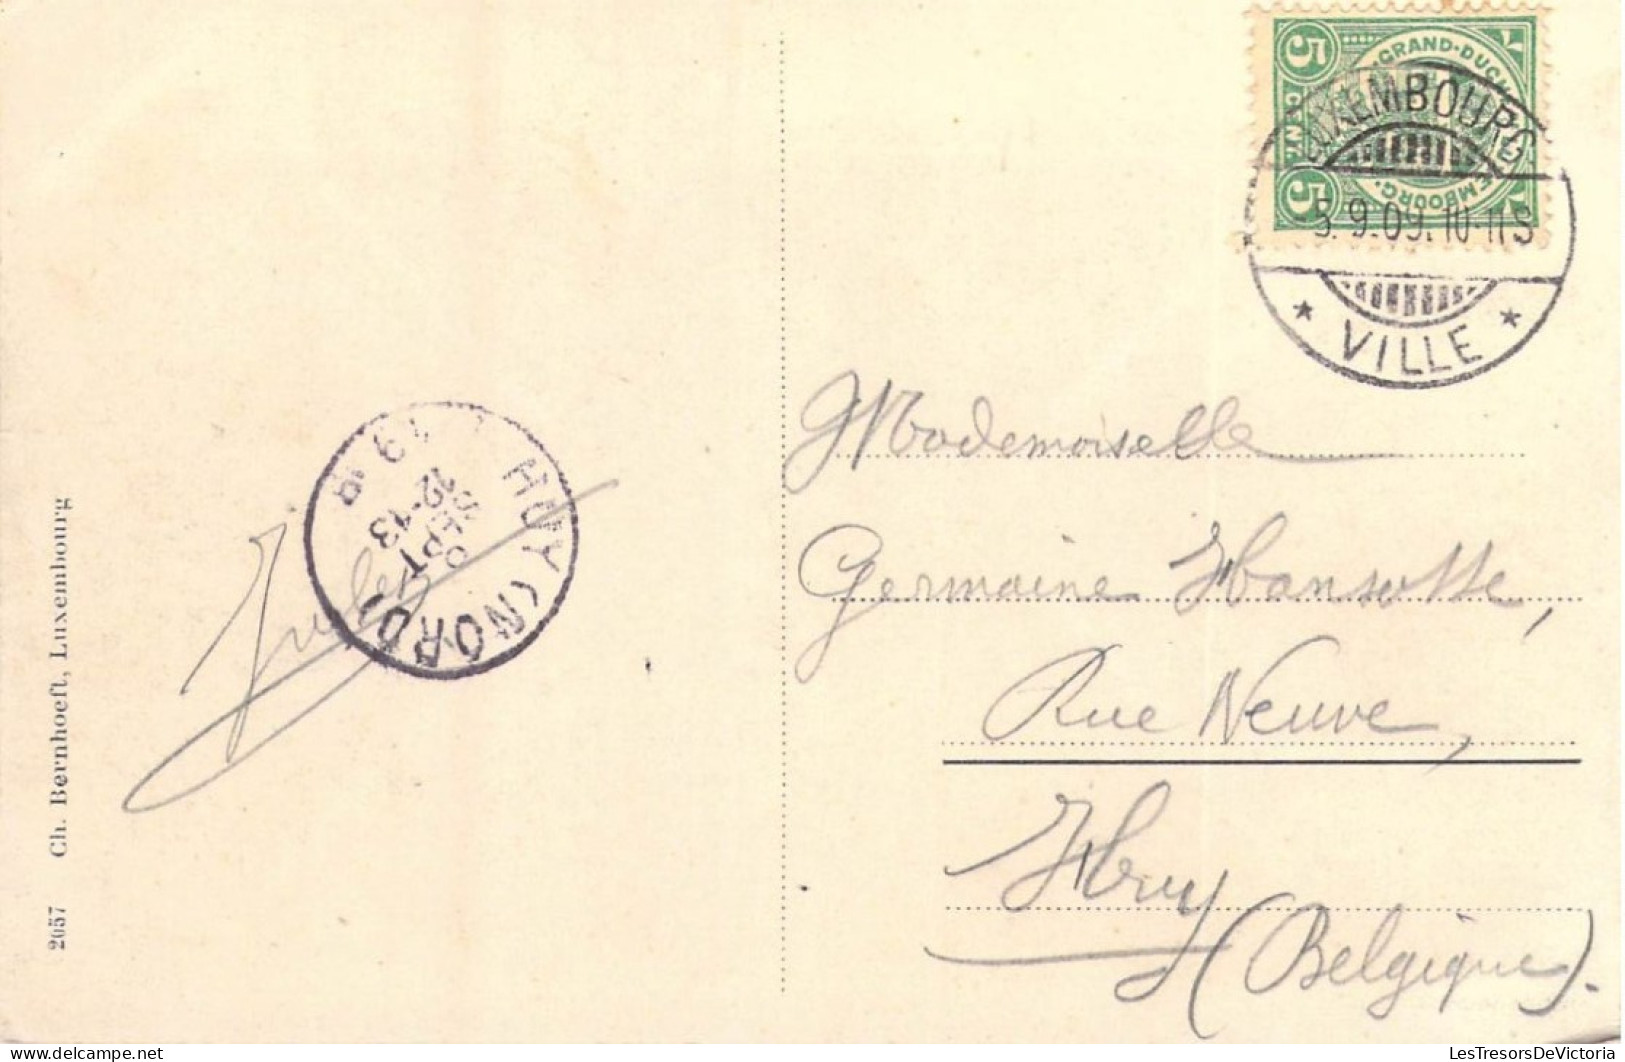 5 GRAND-DUCHÉ
CENT
5 EMBOURG.
LUXEMBOURG
5.9.09.10-11S
* VILLE *
Mademoiselle
Germaine Hansotte,
Rue Neuve,
Huy
(Belgique).
HUY (NORD)
12-13
SEPT
19
Jules
2057 Ch. Bernhoeft, Luxembourg
LesTresorsDeVictoria
www.delcampe.net